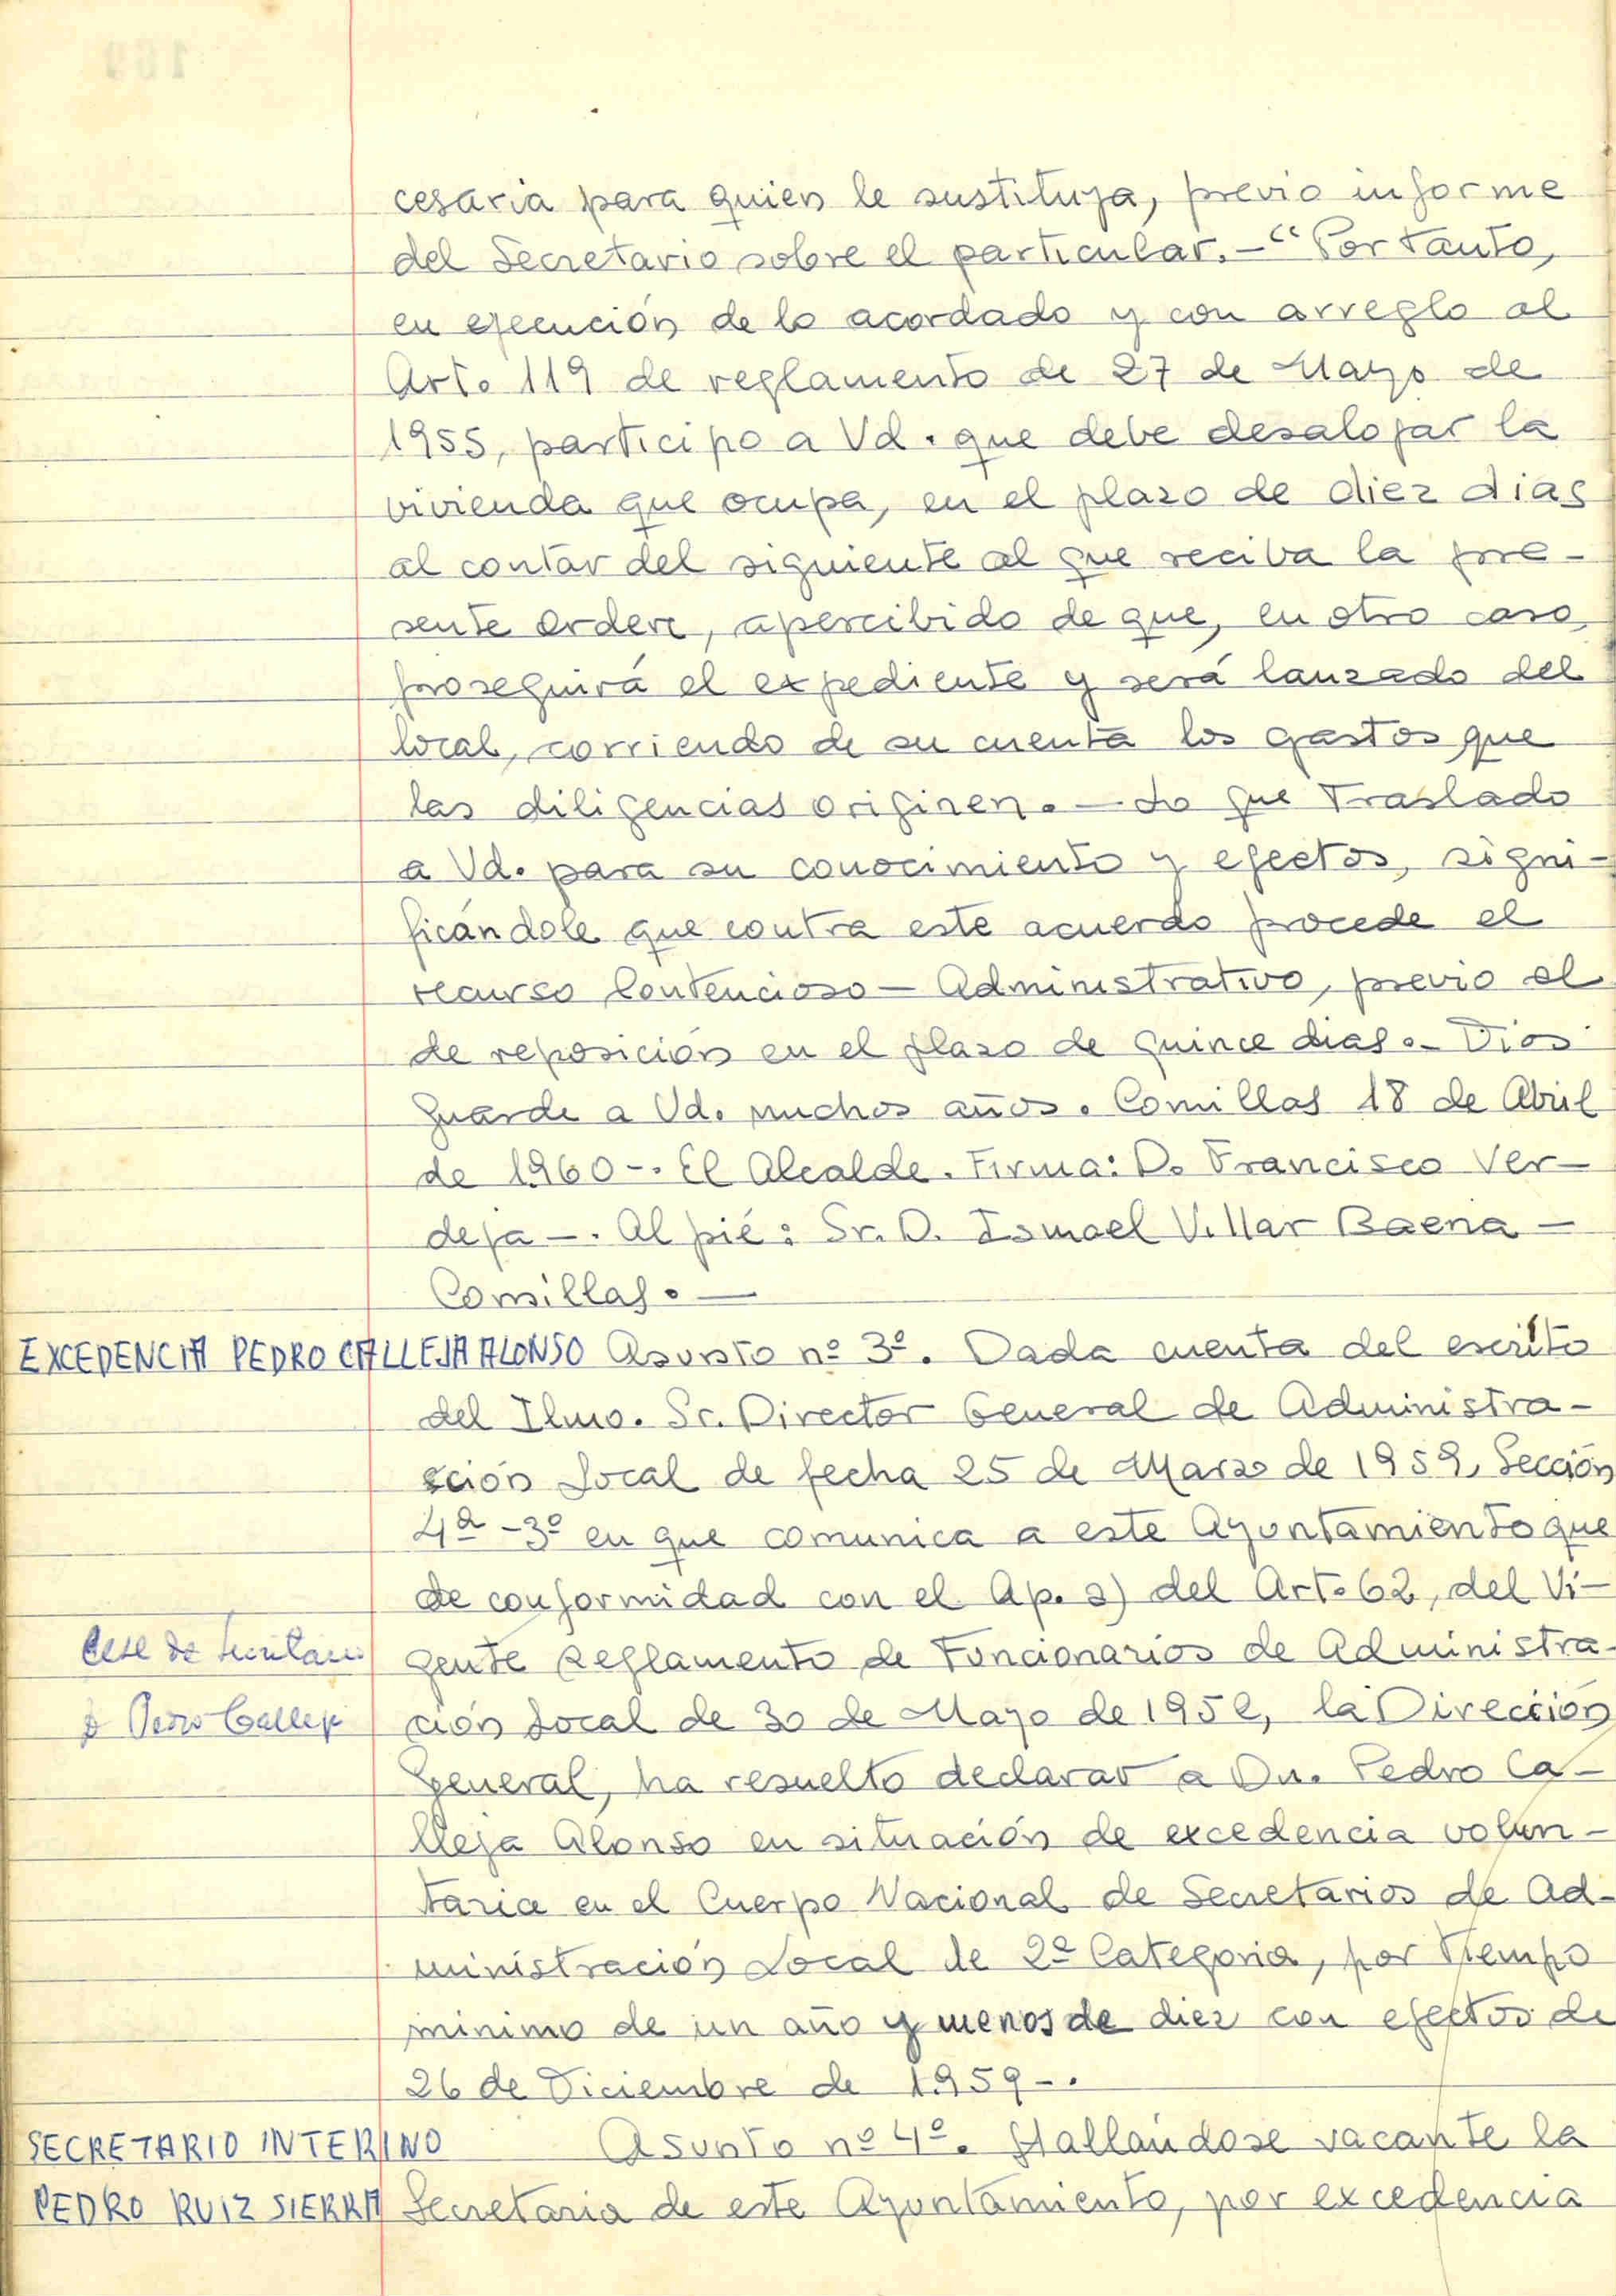 cesaria para quien le sustituya, previo informe
del Secretario sobre el particular.-" Por tanto,
en ejecución de lo acordado y con arreglo al
Arto 119 de reglamento de 27 de Mayo de
1955, participo a Vd. que debe desalojar la
vivienda que ocupa, en el plazo de diez dias
al contar del siguiente al que reciba la pre-
sente orden, apercibido de que, en otro caso,
proseguirá el expediente y será lanzado del
local, corriendo de su cuenta los gastos que
las diligencias originen.- Lo que traslado
a Vd. para su conocimiento y efectos, signi-
ficándole que contra este acuerdo procede el
recurso Contencioso-Administrativo, previo el
de reposición en el plazo de quince dias.- Dios
guarde a Vd. muchos años. Comillas 18 de Abril
de 1960-. El Alcalde. Firma: D. Francisco Ver-
deja-. Al pié: Sr. D. Ismael Villar Baena-
Comillas.-
EXCEDENCIA PEDRO CALLEJA ALONSO Asunto nº 3º. Dada cuenta del escrito
del Ilmo. Sr. Director General de Administra-
ción Local de fecha 25 de Marzo de 1959, Sección
4ª-3º en que comunica a este Ayuntamiento que
de conformidad con el Ap. a) del Arto 62, del Vi-
Cese de Secretario gente Reglamento de Funcionarios de Administra-
D Pedro Calleja ción Local de 30 de Mayo de 1952, la Dirección
General, ha resuelto declarar a Dn. Pedro Ca-
lleja Alonso en situación de excedencia volun-
taria en el Cuerpo Nacional de Secretarios de Ad-
ministración Local de 2ª Categoria, por tiempo
minimo de un año y menos de diez con efectos de
26 de Diciembre de 1.959-.
SECRETARIO INTERINO Asunto nº 4º. Hallándose vacante la
PEDRO RUIZ SIERRA Secretaria de este Ayuntamiento, por excedencia